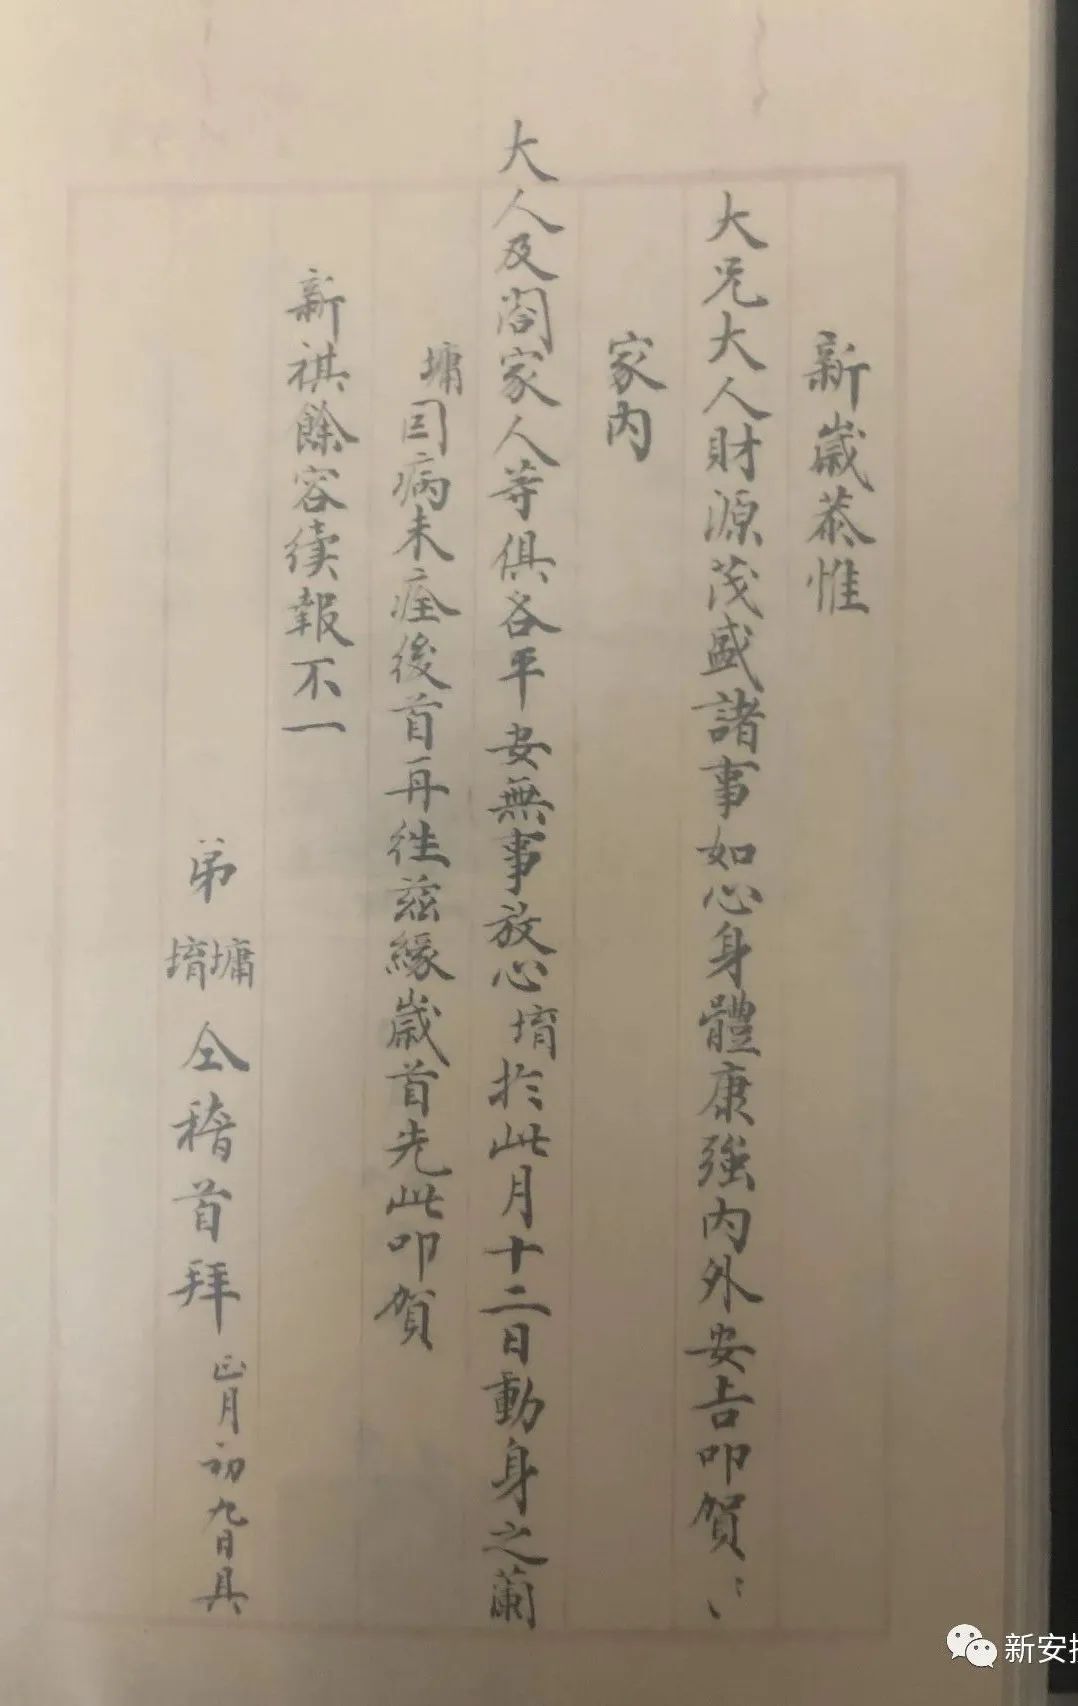 新歲恭惟
大兄大人財源茂盛諸事如心身體康強內外安吉叩賀〻
家內
大人及閤家人等俱各平安無事放心堉於此月十二日動身之蘭
墉因病未痊後首再往茲緣歲首先此叩賀
新祺餘容續報不一
弟墉堉仝稽首拜 正月初九日具
新安